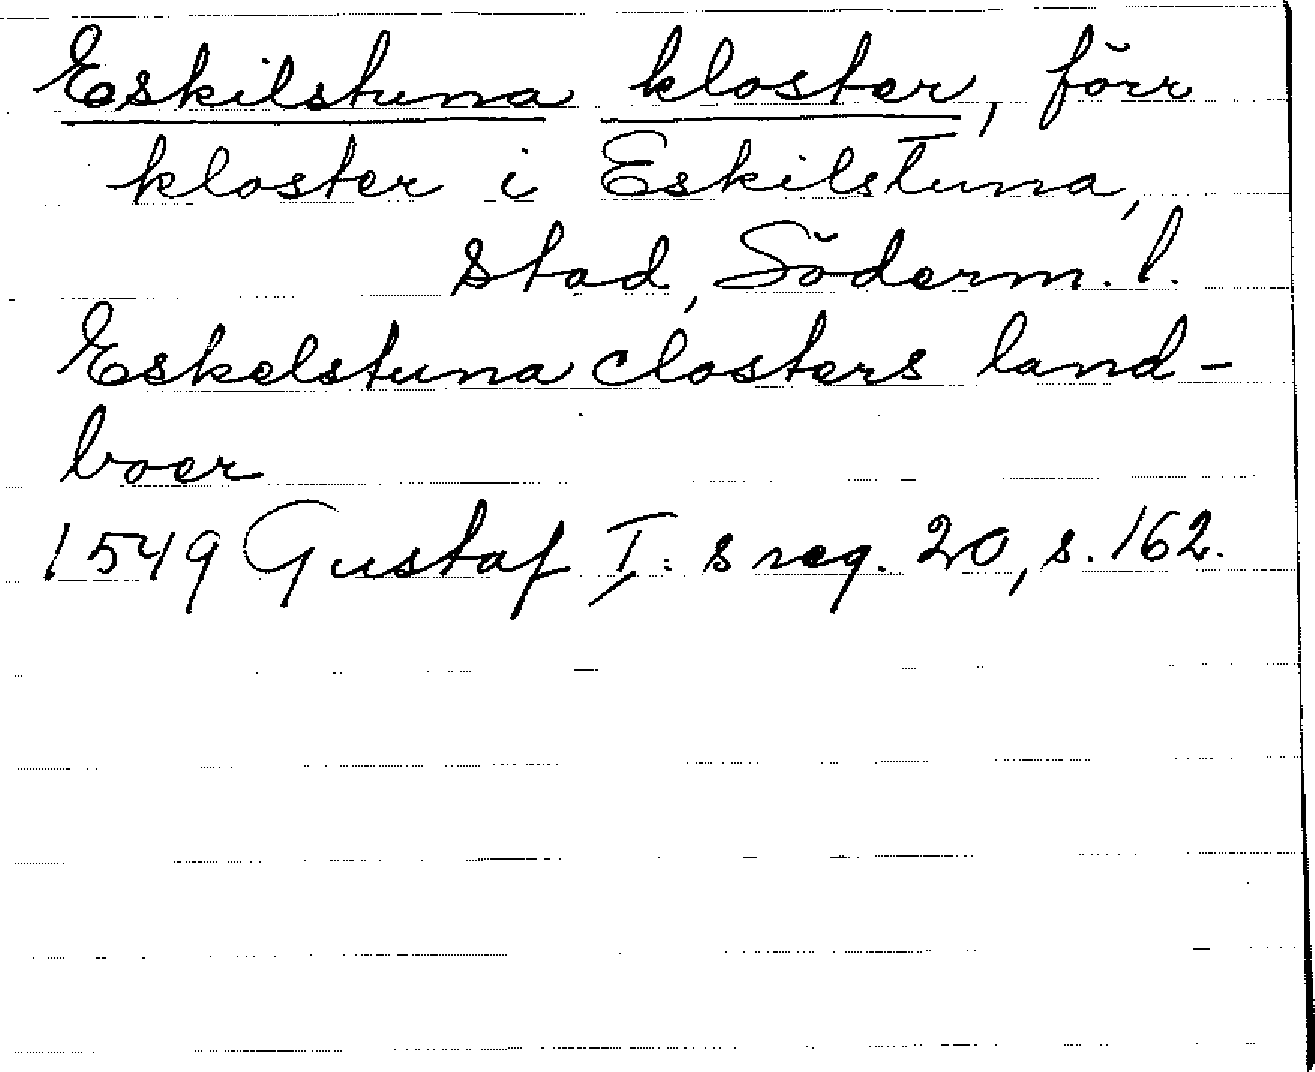 Eskilstuna kloster, förr
kloster i Eskilstuna,
stad, Söderm. l.
Eskelstuna closters land-
boer
1549 Gustaf I:s reg. 20, s. 162.